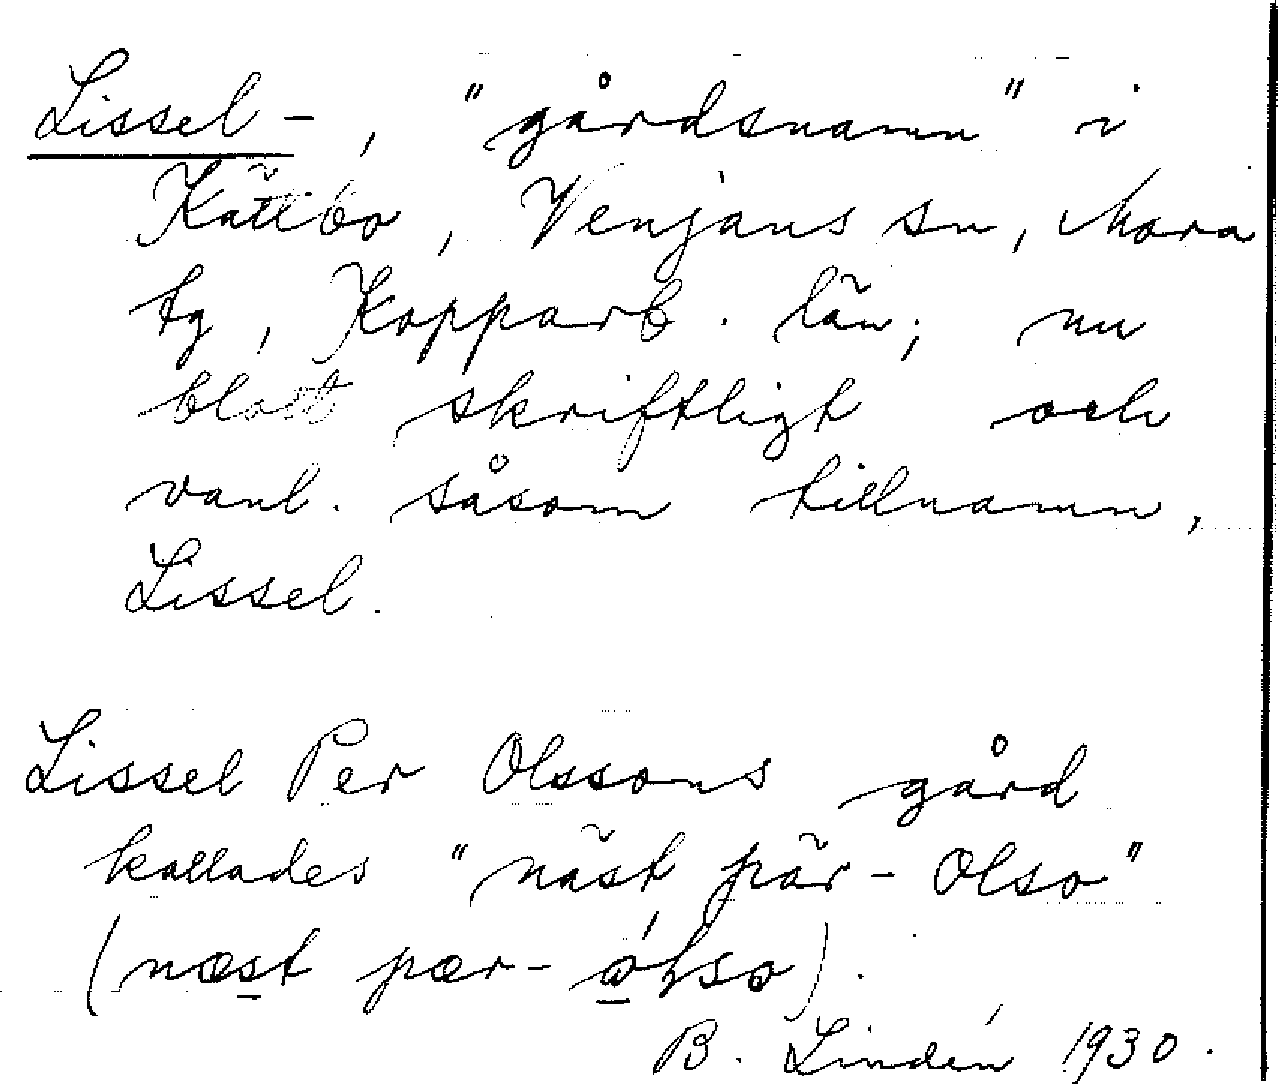 Lissel-, "gårdsnamn" i
Kättbo, Venjans sn, Mora
tg, Kopparb. län; nu
blott skriftligt och
vanl. såsom tillnamn,
Lissel.
Lissel Per Olssons gård
kallades "näst pär-Olso"
(næst pær-
B. Lindén 1930.